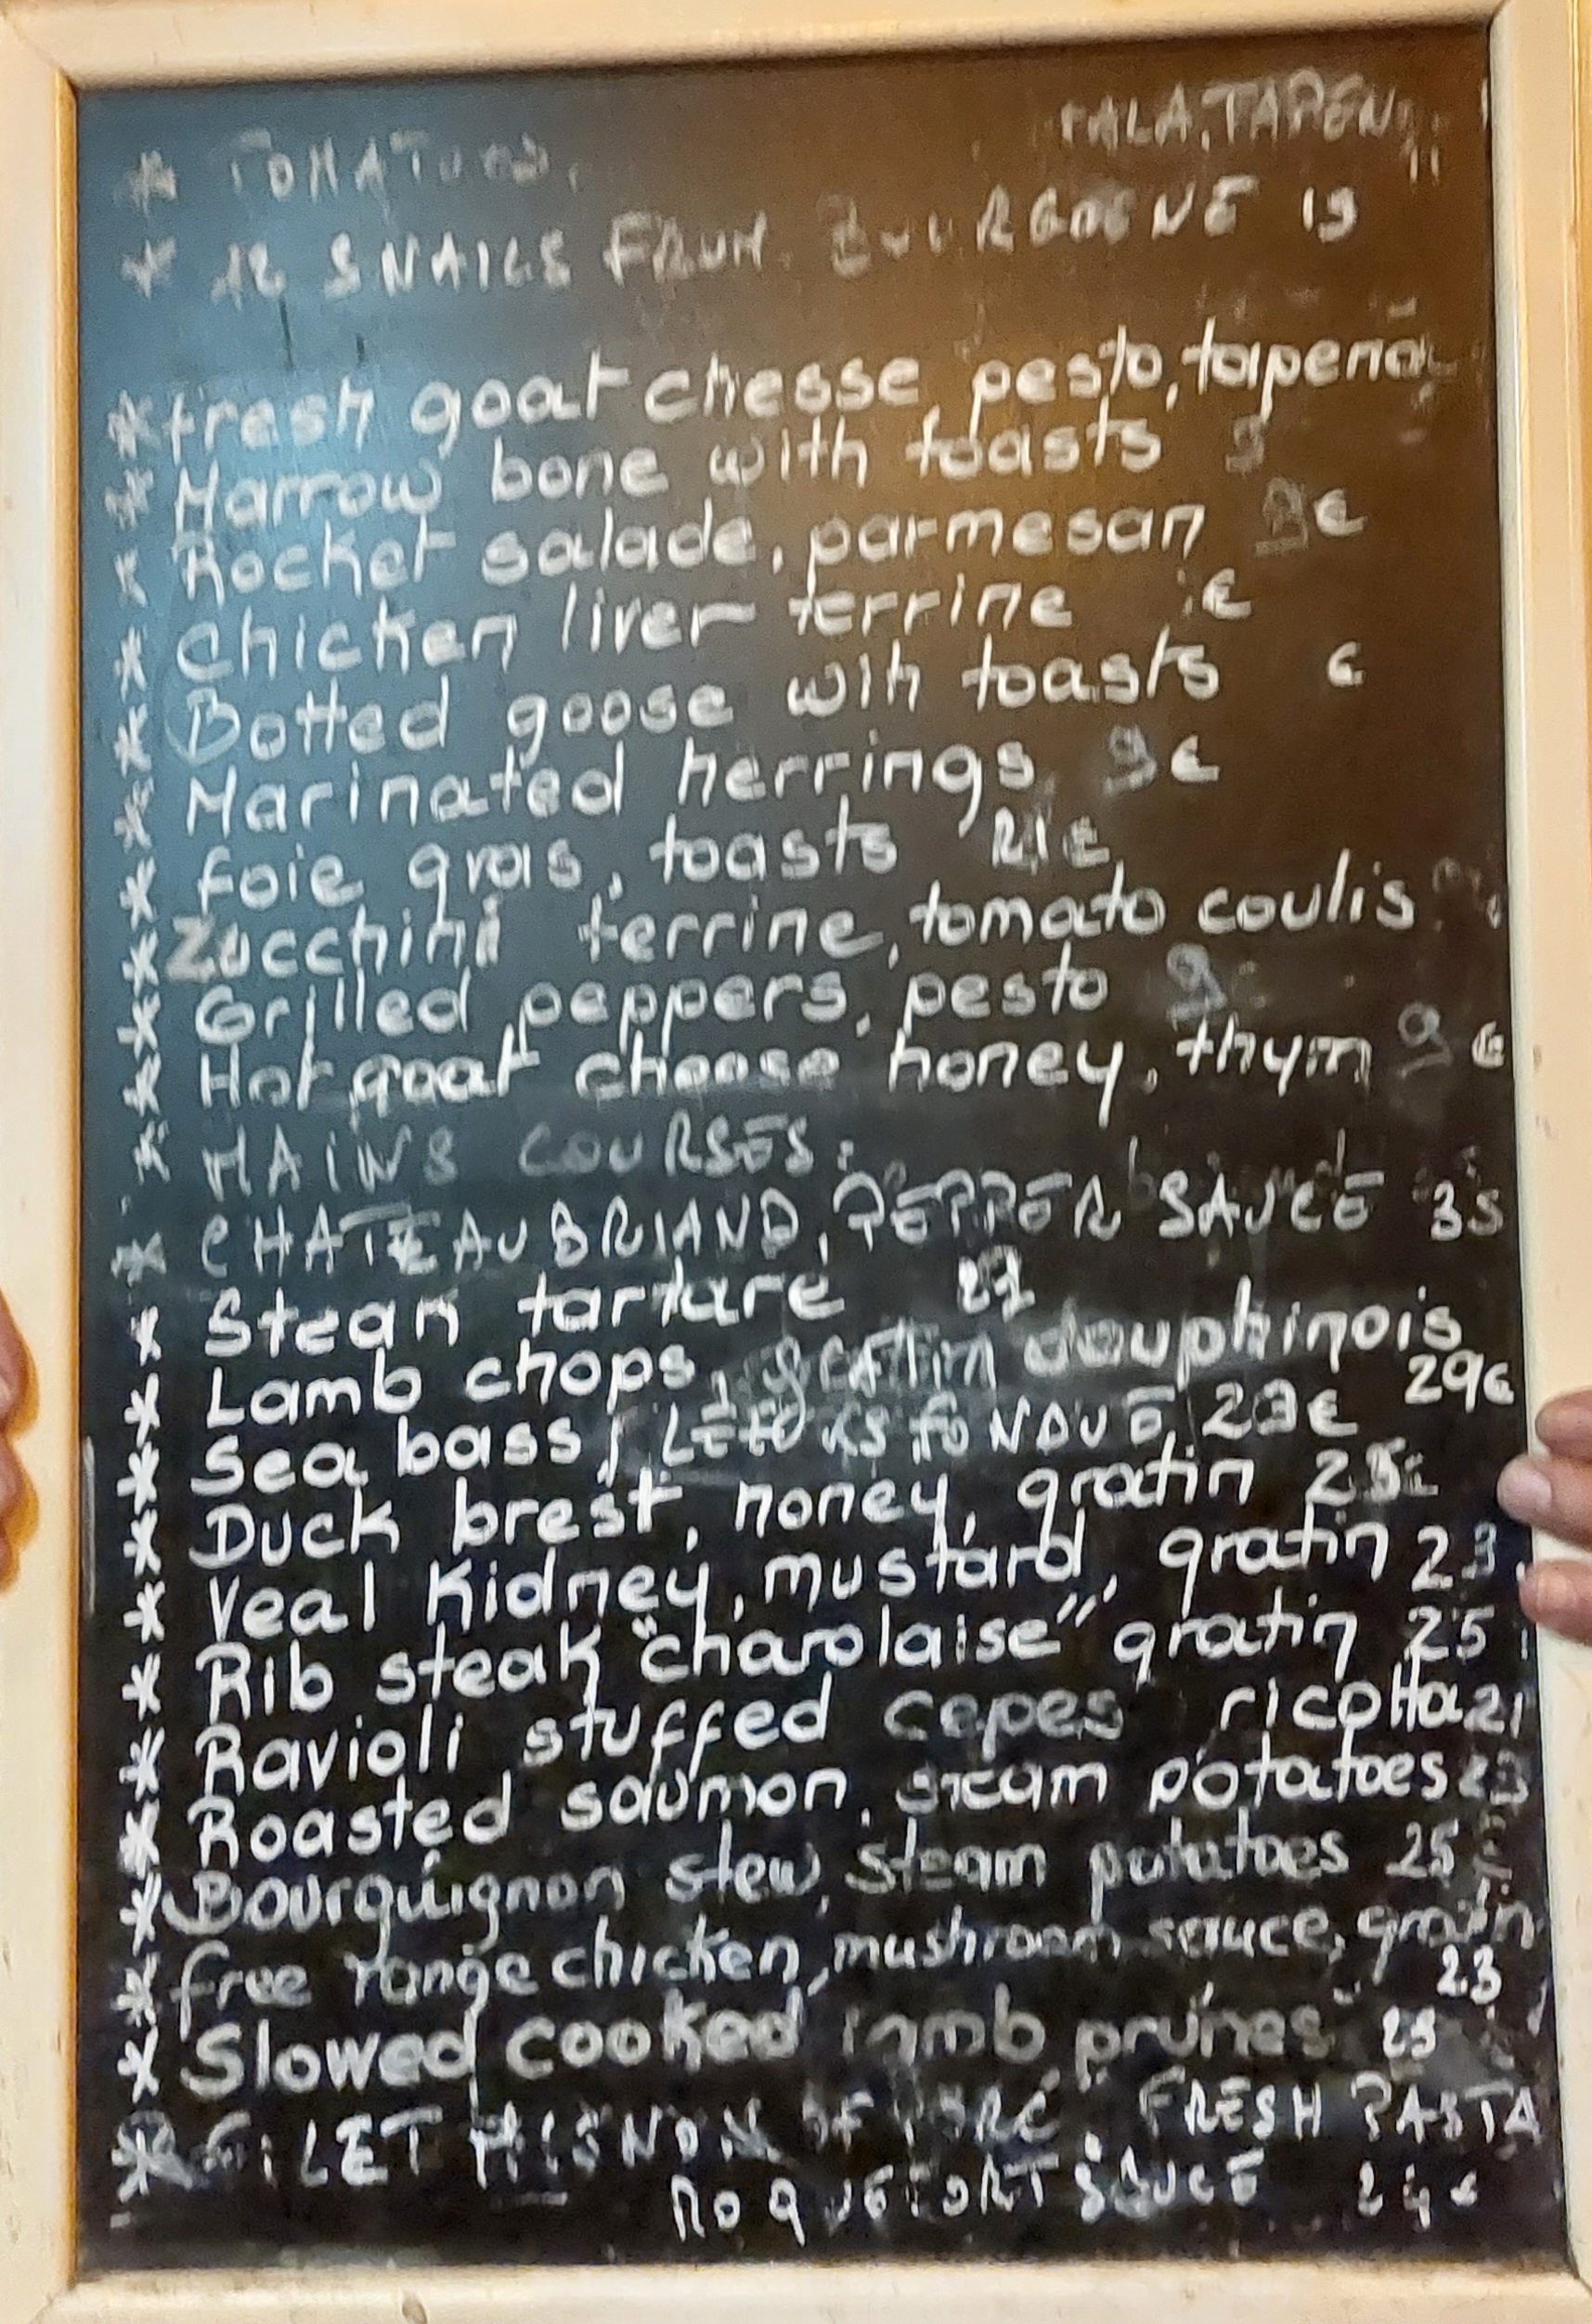 * TOMATOES,
* 12 SNAILS FROM BOURGOGNE 19
* fresh goat chesse, pesto, tapena
* Marrow bone with toasts 9
* Rocket salade, parmesan 9€
* Chicken liver terrine €
* Botted goose wih toasts €
* Marinated herrings 9€
* foie gras, toasts 21€
* Zucchini terrine, tomato coulis
* Grilled peppers, pesto 9
* Hot goat cheese honey, thym 9 €
* MAINS COURSES:
* CHATEAUBRIAND, PEPPER SAUCE 35
* Steak tartare 21
* Lamb chops, gratin dauphinois
29€
* Sea bass, FONDUE, 23€
* Duck brest, honey, gratin 25€
* Veal Kidney, mustard, gratin 23
* Rib steak "charolaise" gratin 25
* Ravioli stuffed cepes ricotta 21
* Roasted saumon, steam potatoes 23
* Bourguignon stew, steam potatoes 25
* free range chicken, mushroom sauce, gratin
23
* Slowed cooked lamb prunes 25
* FILET MIGNON OF PORC FRESH PASTA
ROQUEFORT SAUCE 24€